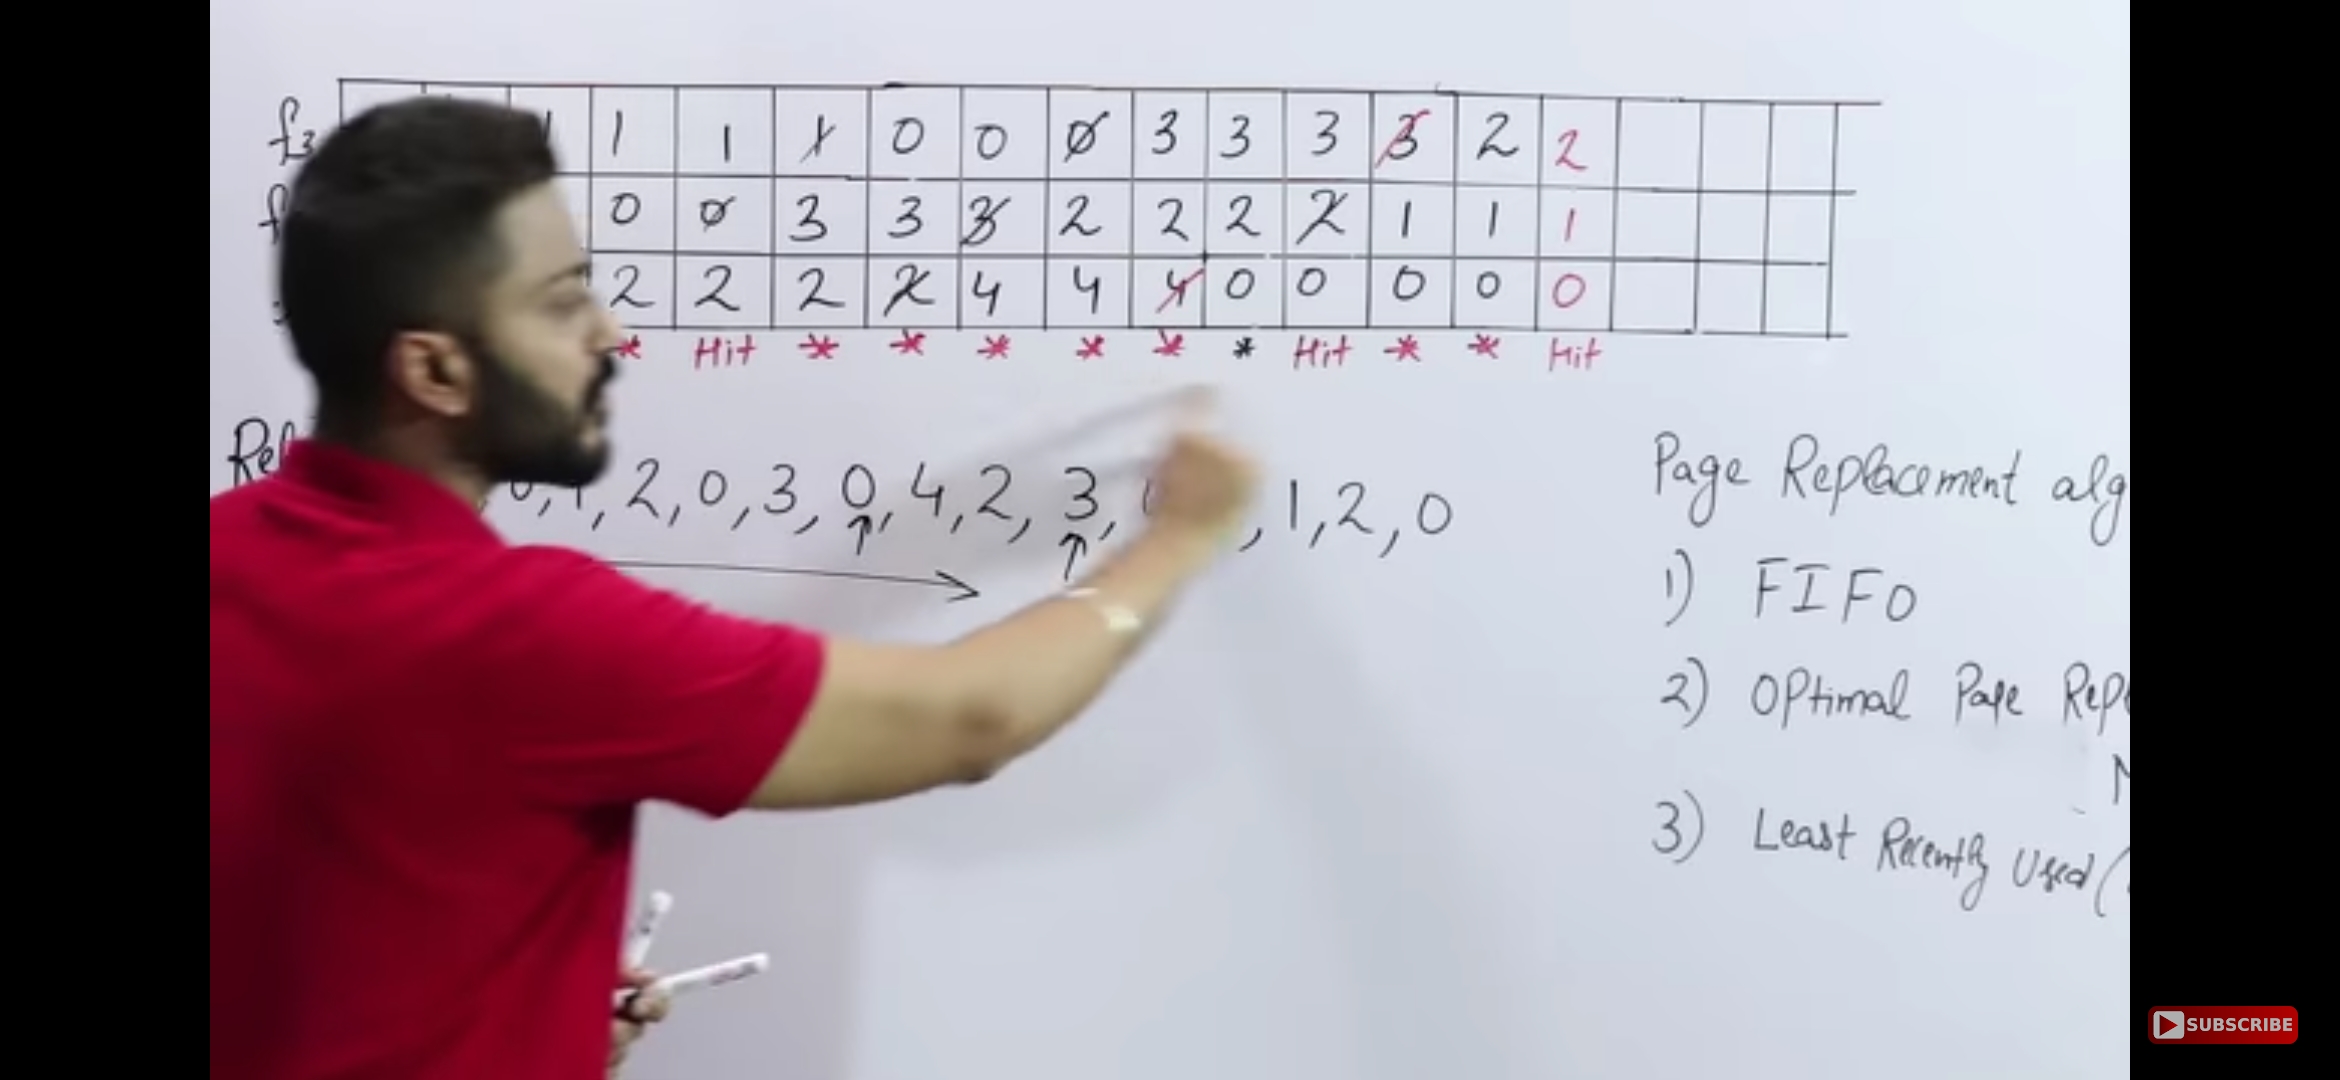 f3 1 1 1 1 0 0 0 3 3 3 3 2 2
f 0 0 3 3 3 2 2 2 2 1 1 1
2 2 2 2 4 4 4 0 0 0 0 0
* Hit * * * * * * Hit * * Hit
2, 0, 3, 0, 4, 2, 3, , 1, 2, 0
Page Replacement alg
1) FIFO
2) Optimal Page Rep
3) Least Recently Used (
SUBSCRIBE